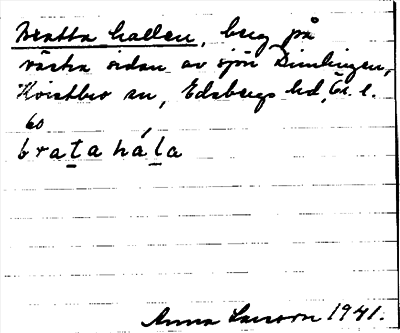 Bratta hallen, berg på
västra sidan av sjön Bimlingen,
Kvistbro sn, Edsbergs hd, Ör. l.
bo
brata hála
Anna Larsson 1941.